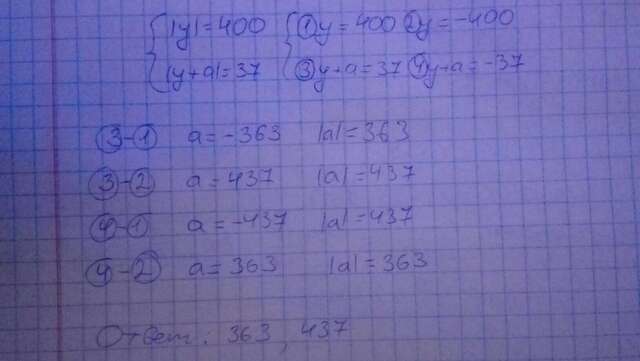 { |y|=400 { ①y=400 ②y=-400
|y+a|=37 ③y+a=37 ④y+a=-37
③-① a=-363 |a|=363
③-② a=437 |a|=437
④-① a=-437 |a|=437
④-② a=363 |a|=363
Ответ: 363, 437